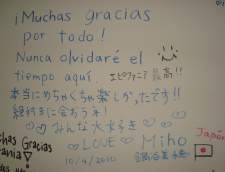 ¡Muchas gracias
por todo!
Nunca olvidaré el
tiempo aquí. エピファニア 最高!!
本当にめちゃくちゃ楽しかったです!!
絶対また会おうネ!
♡♡みんな大好き
♡LOVE♡ Miho
10/4/2010
Japón
chas Gracias